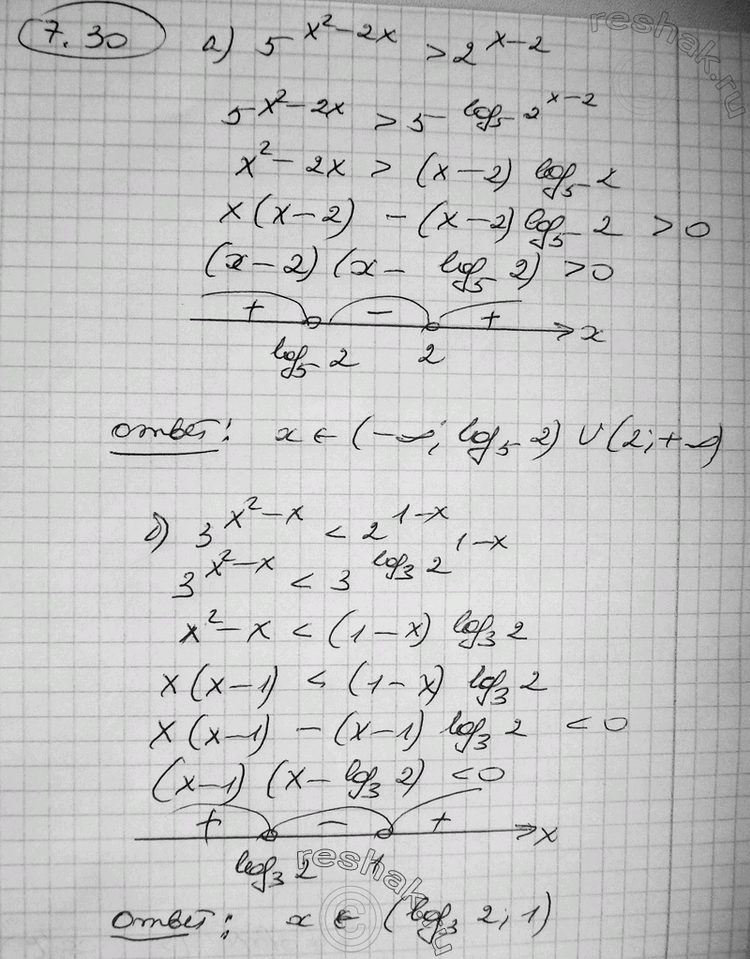 7.30 а) 5^{x²-2x} > 2^{x-2}
reshak.ru
5^{x²-2x} > 5^{log₅ 2^{x-2}}
x² - 2x > (x-2) log₅ 2
x(x-2) - (x-2) log₅ 2 > 0
(x-2)(x - log₅ 2) > 0
+ - + x
log₅ 2 2
Ответ: x ∈ (-∞; log₅ 2) ∪ (2; +∞)
б) 3^{x²-x} < 2^{1-x}
3^{x²-x} < 3^{log₃ 2^{1-x}}
x² - x < (1-x) log₃ 2
x(x-1) < (1-x) log₃ 2
x(x-1) - (x-1) log₃ 2 < 0
(x-1)(x - log₃ 2) < 0
+ - + x
log₃ 2 1
reshak.ru
©
Ответ: x ∈ (log₃ 2; 1)